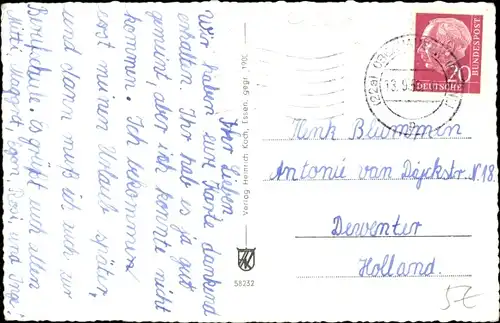 Ihr Lieben
Wir haben eure Karte dankend
erhalten. Ihr hab es ja gut
gemeint, aber ich konnte nicht
kommen. Ich bekommen
erst meinen Urlaub später,
und dann muß ich auch zur
Berufschule. es grüßt euch allen
Mitti, Vati, Egon, Rosi, und Inge
Verlag Heinrich Koch, Essen. Gegr. 1900
58232
(22a)
13.9.5
DEUTSCHE
BUNDESPOST
20
Henk Blumman
Antonie van Dijckstr. N.18.
Dewenter
Holland.
5€